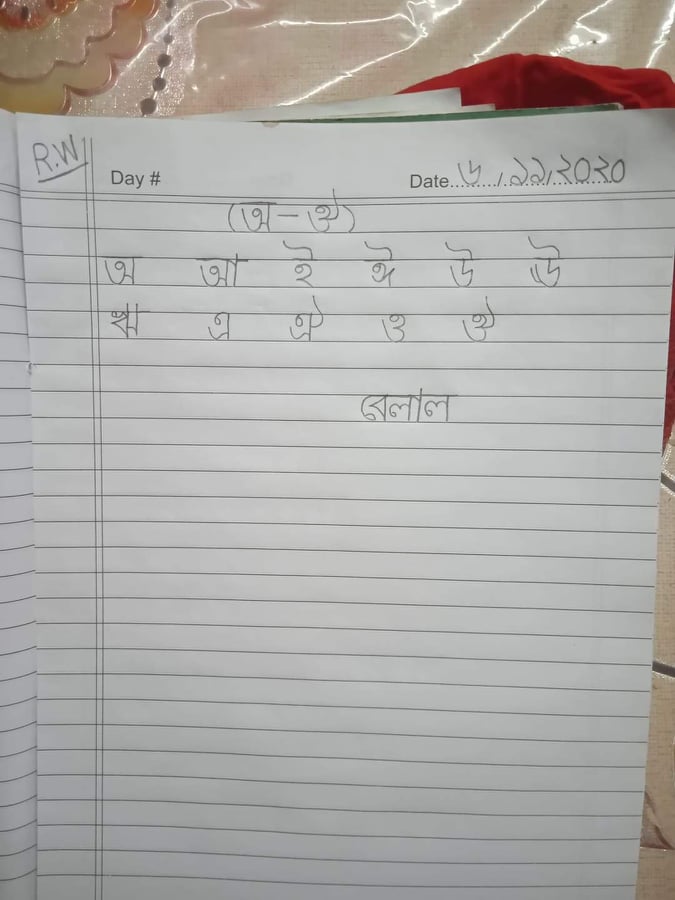 R.W
Day # Date ৬/১১/২০২০
(অ - ঔ)
অ আ ই ঈ উ ঊ
ঋ এ ঐ ও ঔ
বেলাল